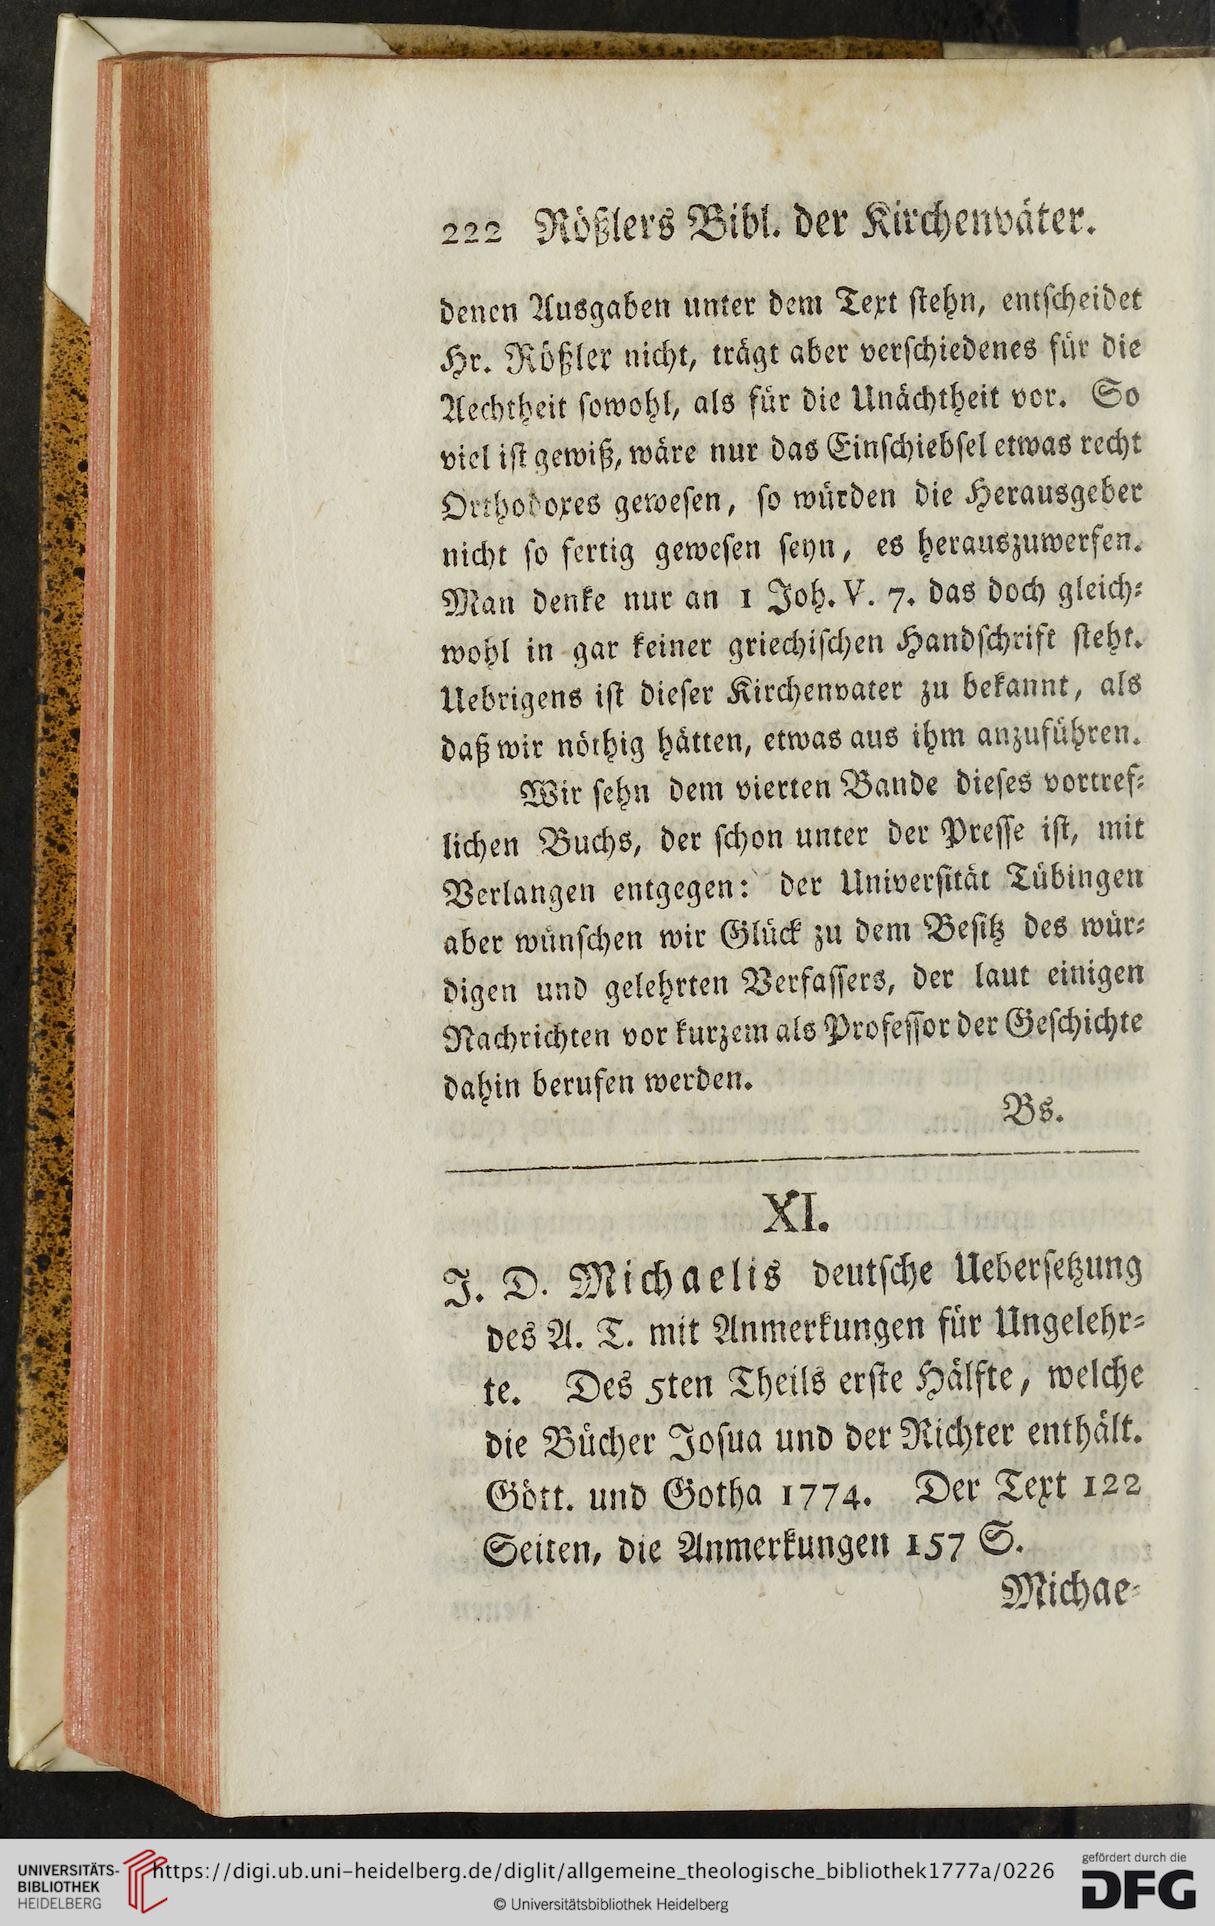 222 Rößlers Bibl. der Kirchenväter.
denen Ausgaben unter dem Text stehn, entscheidet
Hr. Rößler nicht, trägt aber verschiedenes für die
Aechtheit sowohl, als für die Unächtheit vor. So
viel ist gewiß, wäre nur das Einschiebsel etwas recht
Orthodoxes gewesen, so würden die Herausgeber
nicht so fertig gewesen seyn, es herauszuwerfen.
Man denke nur an 1 Joh. V. 7. das doch gleich-
wohl in gar keiner griechischen Handschrift steht.
Uebrigens ist dieser Kirchenvater zu bekannt, als
daß wir nöthig hätten, etwas aus ihm anzuführen.
Wir sehn dem vierten Bande dieses vortref-
lichen Buchs, der schon unter der Presse ist, mit
Verlangen entgegen: der Universität Tübingen
aber wünschen wir Glück zu dem Besitz des wür-
digen und gelehrten Verfassers, der laut einigen
Nachrichten vor kurzem als Professor der Geschichte
dahin berufen werden.
Bs.
XI.
J. D. Michaelis deutsche Uebersetzung
des A. T. mit Anmerkungen für Ungelehr-
te. Des 5ten Theils erste Hälfte, welche
die Bücher Josua und der Richter enthält.
Gött. und Gotha 1774. Der Text 122
Seiten, die Anmerkungen 157 S.
Michae-
UNIVERSITÄTS-
BIBLIOTHEK
HEIDELBERG
https://digi.ub.uni-heidelberg.de/diglit/allgemeine_theologische_bibliothek1777a/0226
© Universitätsbibliothek Heidelberg
gefördert durch die
DFG